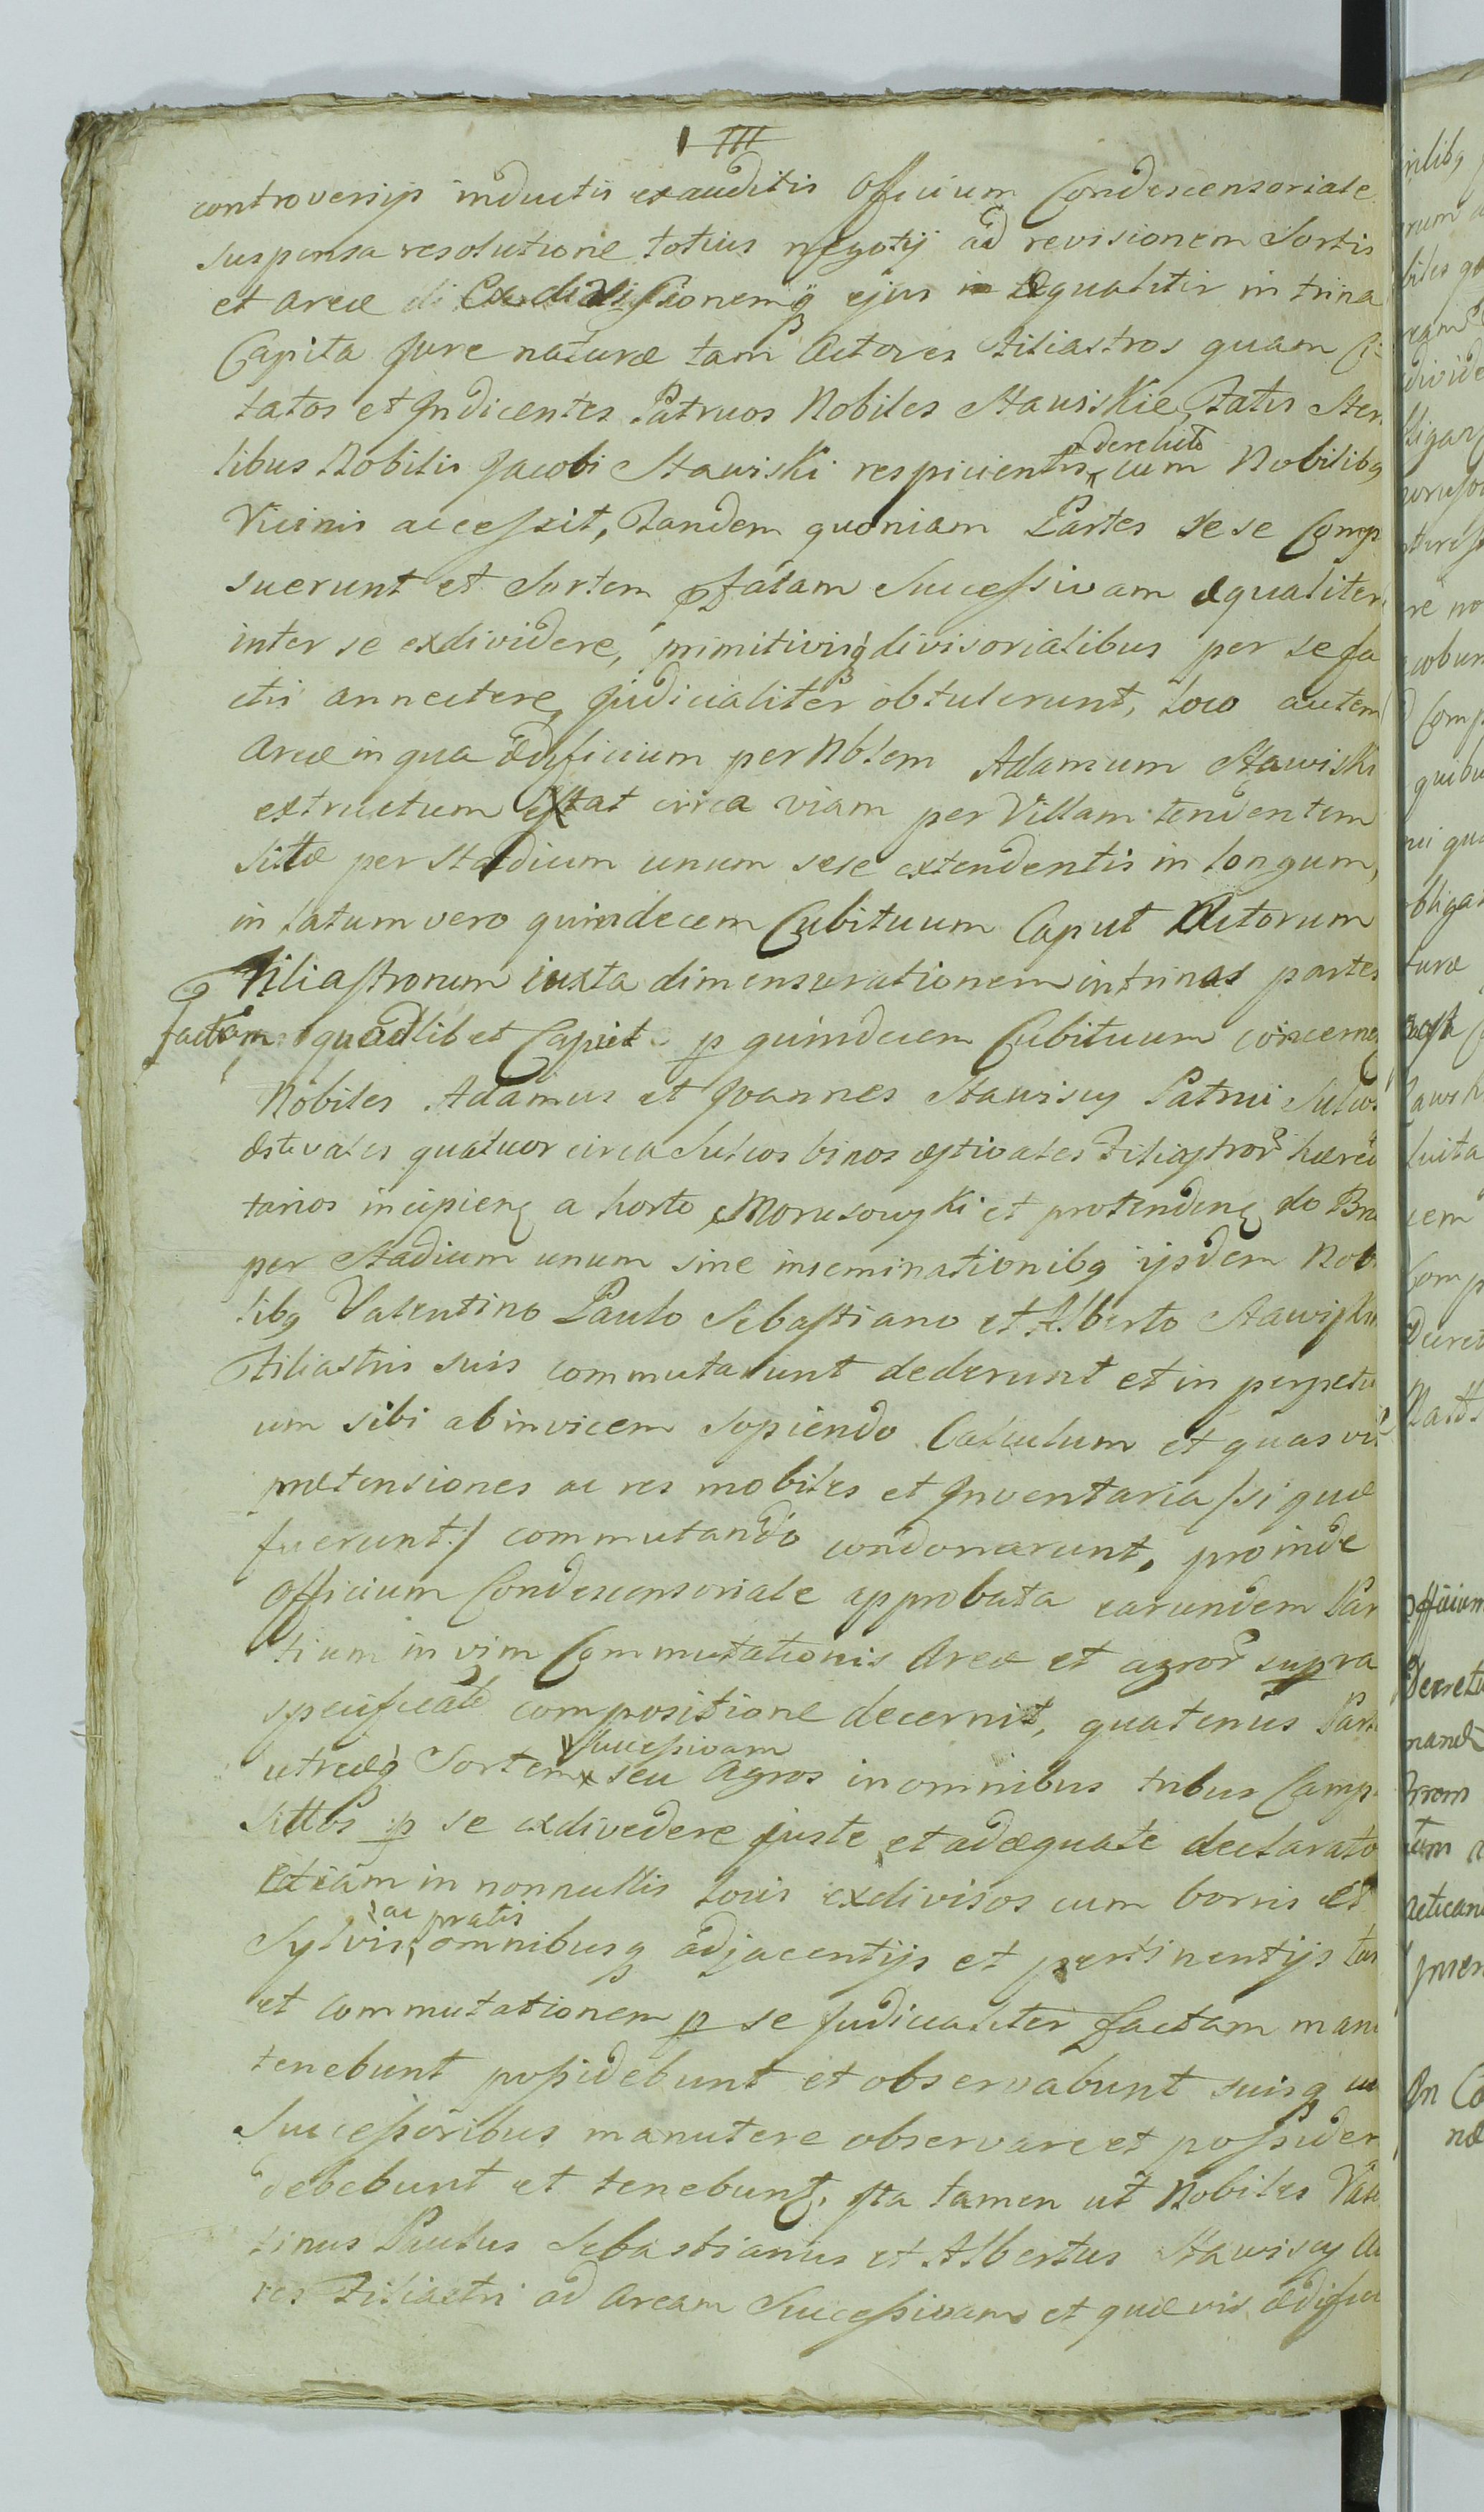 III
controversijs inductis exauditis Officium Condescensoriale
suspensa resolutione totius negotij ad revisionem Sortis
et areæ Exdivisionemq3 ejus in æqualiter in trina
Capita jure naturæ tam Actores Filiastros quam Ci-
tatos et Indicentes Patruos Nobiles Stawiskie, Fatis Ster
libus Nobilis Jacobi Stawiski respicientis derelicto cum Nobilibq
Vicinis accessit, Tandem quoniam Partes sese Comp
suerunt et Sortem pfatam Successivam æqualiter
inter se exdividere, primitivisq3 divisorialibus per se fa
ctis annectere judicialiter obtulerunt, loco autem
areæ in qua ædificium per Nblem Adamum Stawiski
extructum extat circa viam per Villam tendentem
sitæ per Stadium unum sese extendentis in longum,
in latum vero quindecem Cubituum Caput Actorum
Filiastrorum iuxta dimensurationem in trinas partes
factam quodlibet Caput p quindecem Cubituum concernen
Nobiles Adamus et Joannes Stawiscy Patrui Sulcos
æstivales quatuor circa Sulcos binos æstivales Filiastror hæredi
tarios incipien a horto Morusowski et protenden do Bru
per Stadium unum sine inseminationibq ijsdem Nobi
libq Valentino Paulo Sebastiano et Alberto Stawiskie
Filiastris suis commutarunt dederunt et in perpetu
um sibi ab invicem sopiendo Calculum et quasvis
prætensiones ac res mobiles et Inventaria /si quæ
fuerunt/ commutando condonarunt, proinde
Officium Condescensoriale approbata earundem Par
tium in vim Commutationis Areæ et agror supra
specificatæ compositione decernit, quatenus Part
utræq Sortem Successivam seu Agros in omnibus tribus Camp
sittos p se exdivedere juste et adæquate declarato
etiam in nonnullis locis exdivisos cum borris et
Sylvis ac pratis omnibusq adjacentijs et pertinentijs
et commutationem p se judicialiter factam manu
tenebunt possidebunt et observabunt suisq
Successoribus manutere observare et possider
debebunt et tenebunt, Ita tamen ut Nobiles Vale
tinus Paulus Sebastianus et Albertus Stawiscy Ac
res Filiastri ad aream Successivam et quævis ædifici